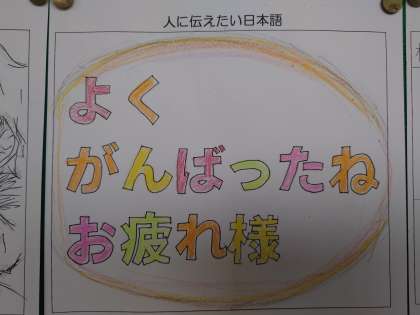 人に伝えたい日本語
よく
がんばったね
お疲れ様